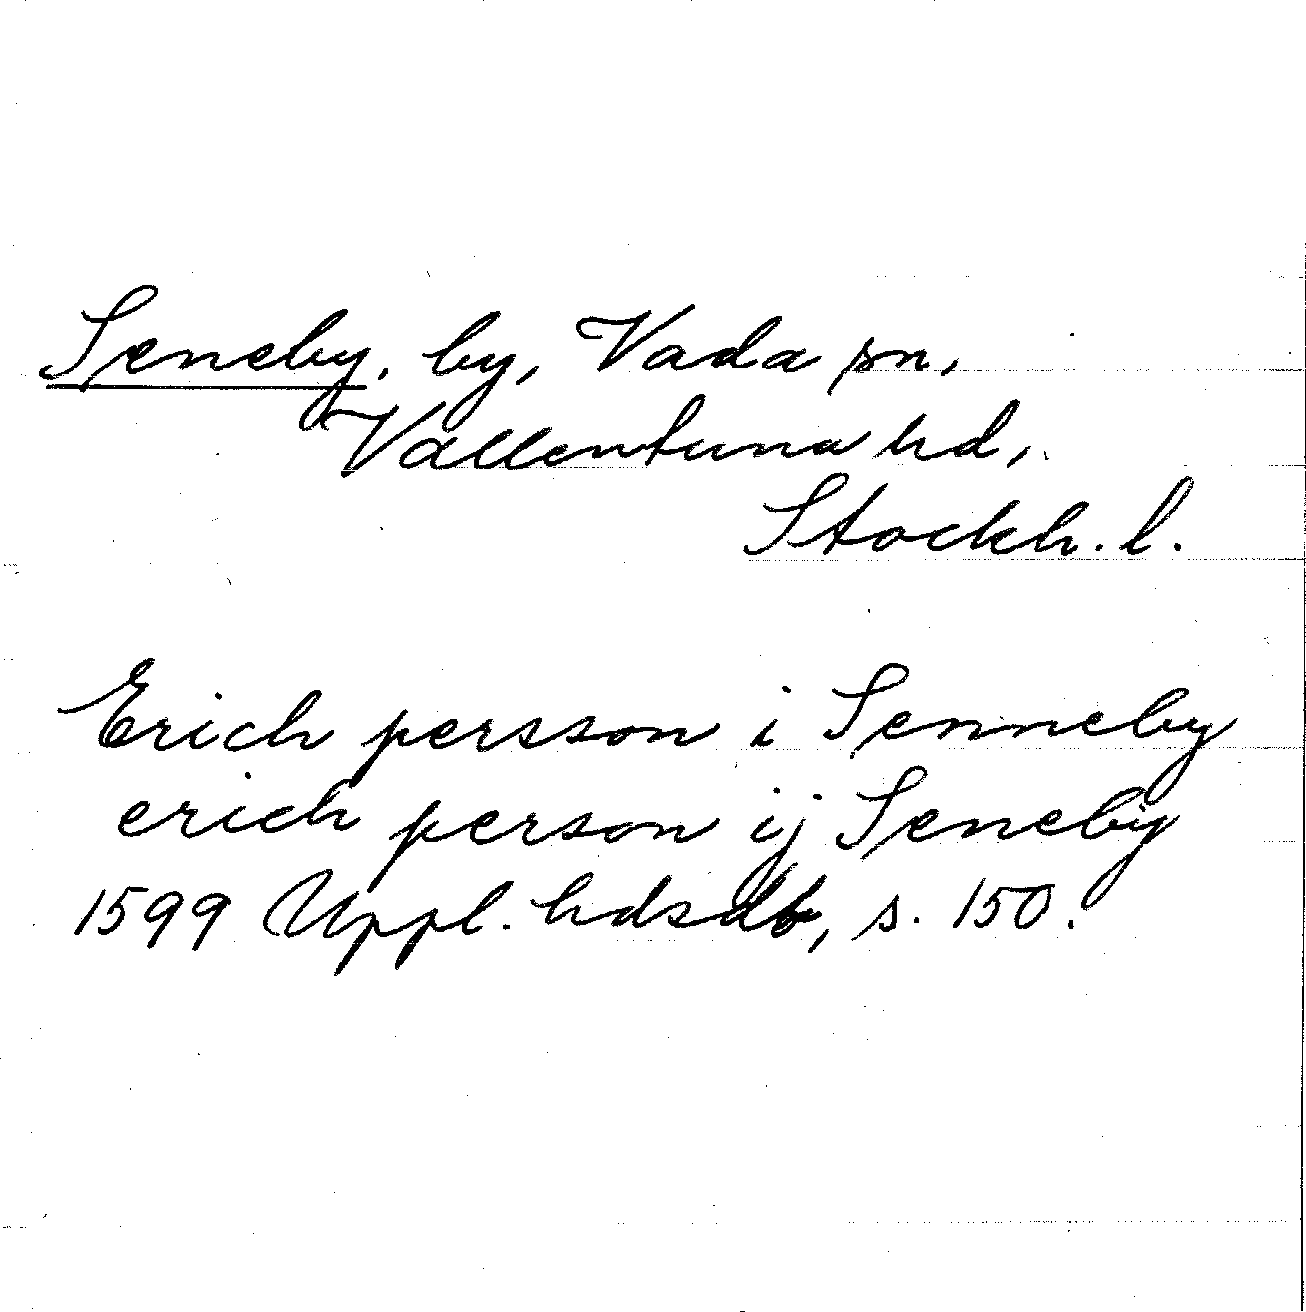 Seneby, by, Vada sn,
Vallentuna hd,
Stockh. l.
Erich persson i Senneby
erich person ij Seneby
1599 Uppl. hdsdb, s. 150.